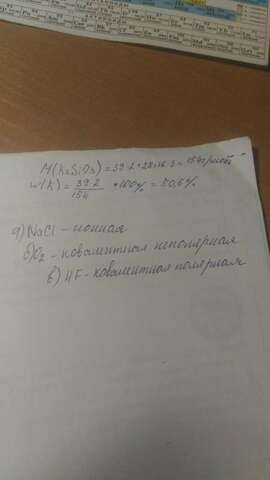 M(K₂SiO₃) = 39·2+28+16·3 = 154г/моль
w(K) = 39·2/154 *100% = 50,6%
а) NaCl - ионная
б) O₂ - ковалентная неполярная
в) HF - ковалентная полярная